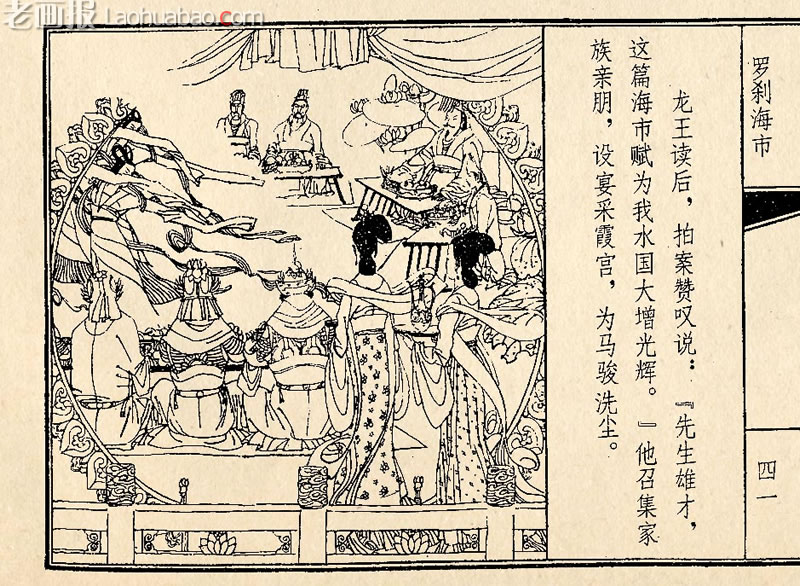 老画报 www.laohuabao.com
罗刹海市
龙王读后，拍案赞叹说：『先生雄才，
这篇海市赋为我水国大增光辉。』他召集家
族亲朋，设宴采霞宫，为马骏洗尘。
四一